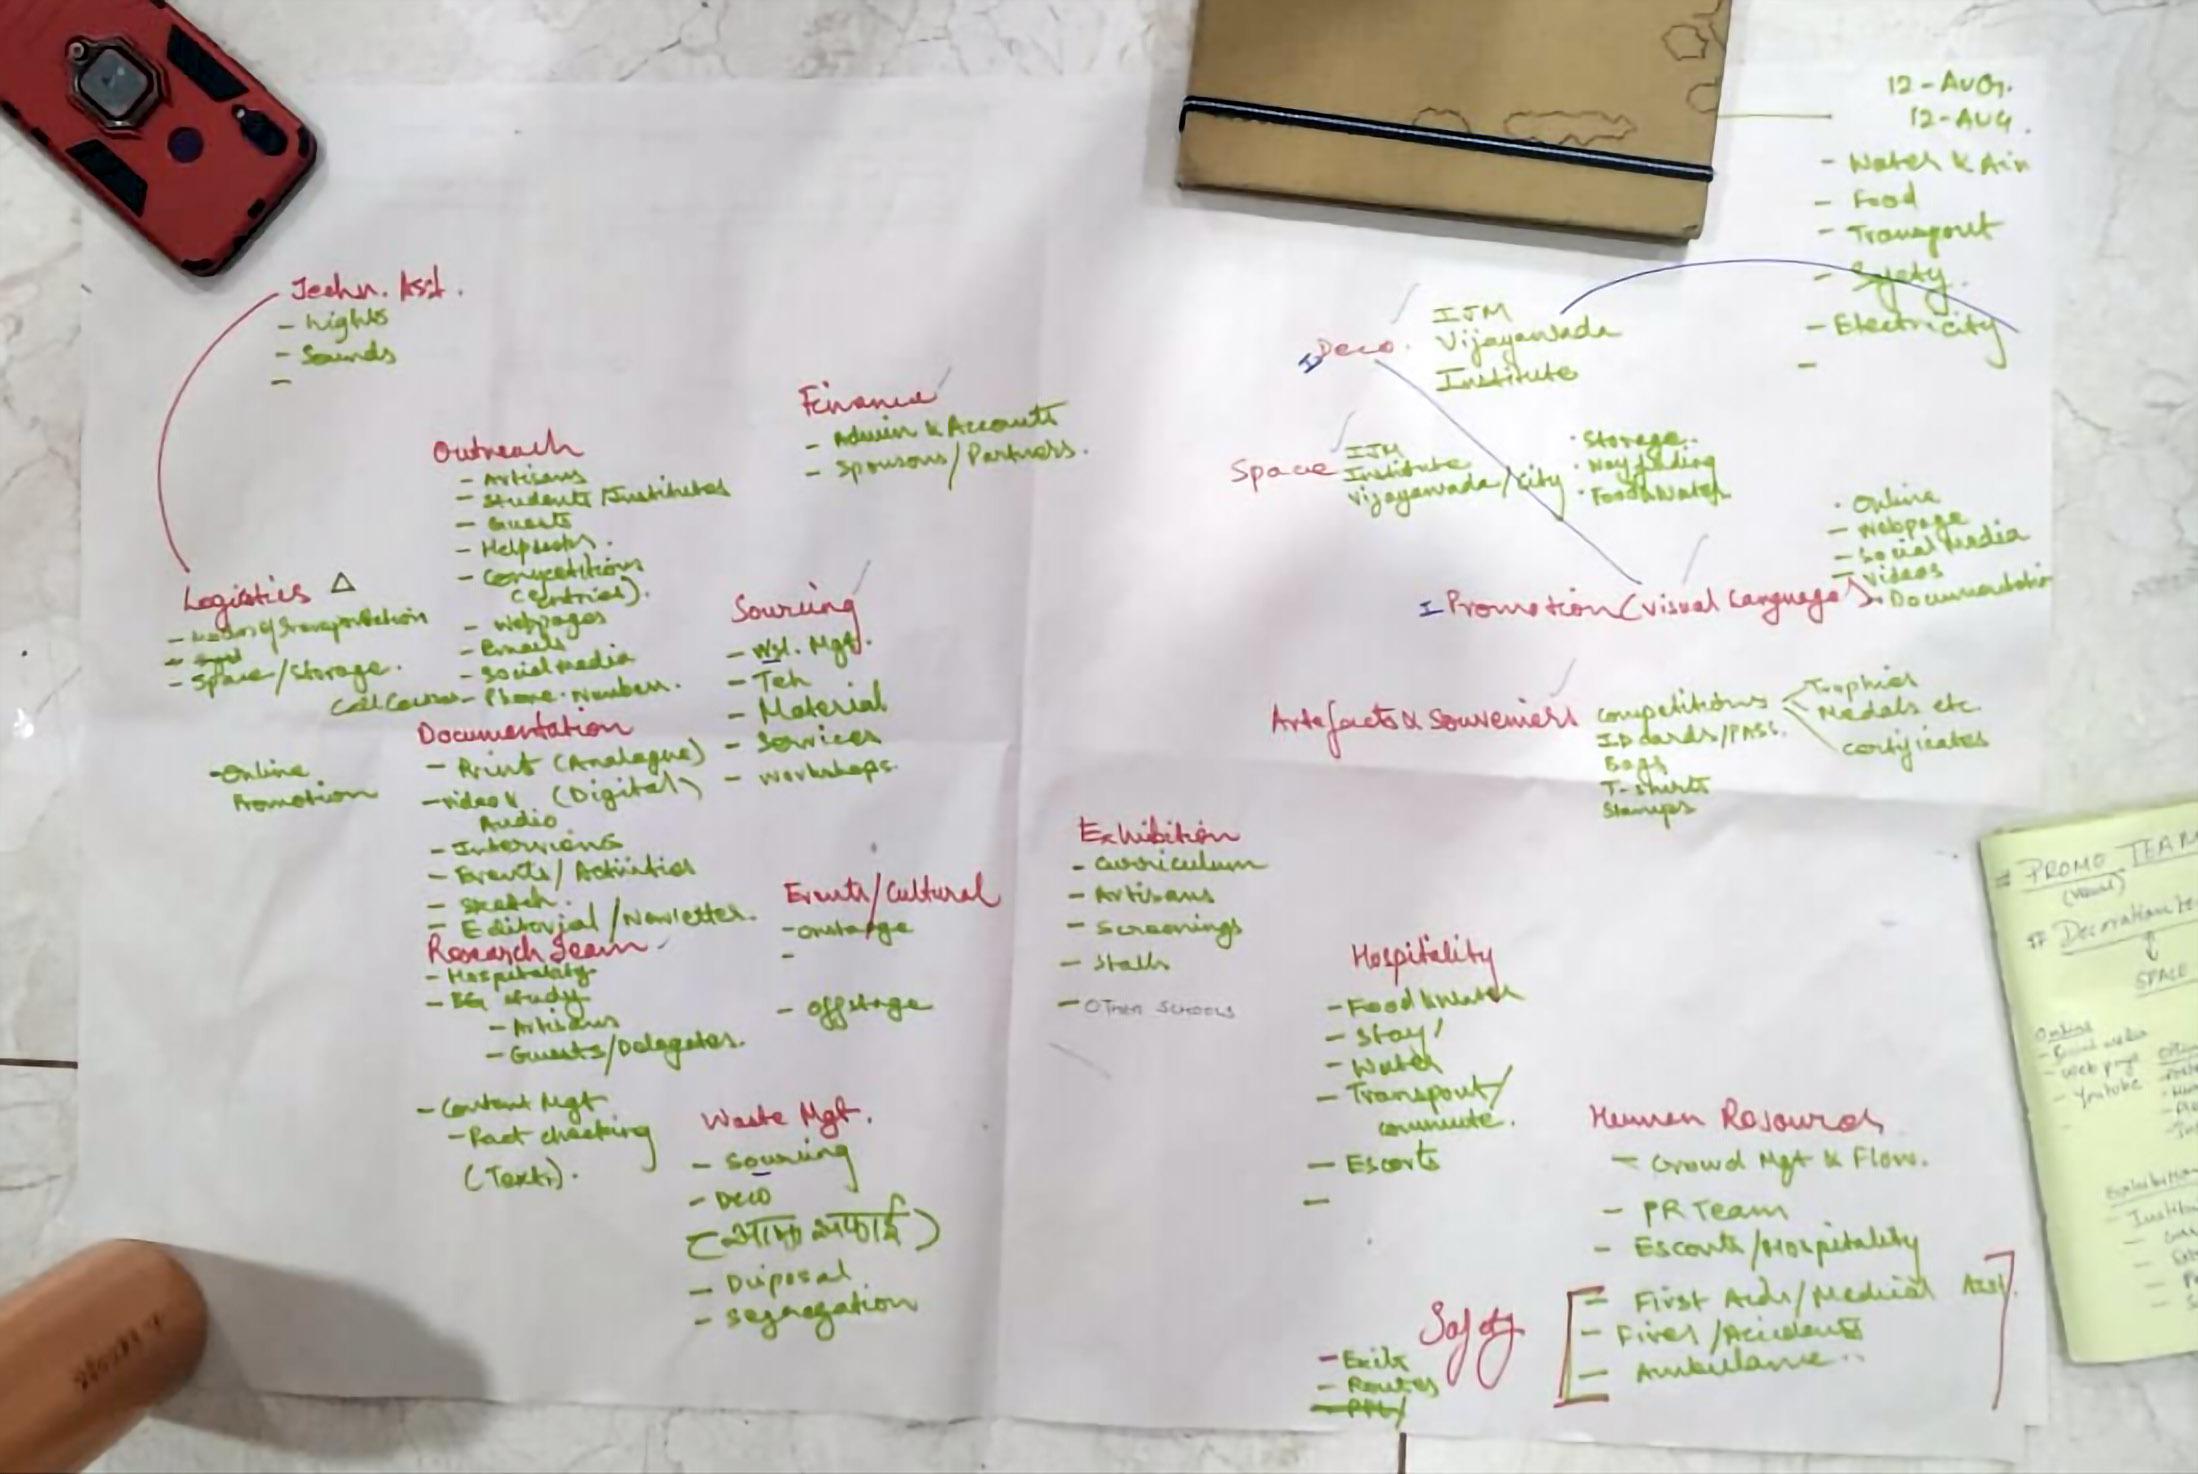 12-AUG.
12-AUG.
- Water & Air
- Food
- Transport
- Safety.
- Electricity
-
Techn. Asst.
- Lights
- Sounds
-
Logistics △
- Modes of Transportation
- Space/Storage.
- Online
Promotion
Outreach
- Artisans
- Students/Institutes
- Guests
- Helpdesks.
- Competitions
(entries).
- Webpages
- Emails
- Social media
- Phone. Numbers.
Documentation
- Print (Analogue)
- Video & (Digital)
Audio
- Interviews
- Events/Activities
- Sketch.
- Editorial/Newsletter.
Research Team
- Hospitality
- BG study
- Artisans
- Guests/Delegates.
- Content Mgt
- Fact checking
(Texts).
Finance
- Admin & Accounts
- Sponsors/Partners.
Sourcing
- Wst. Mgt.
- Teh
- Material
- Services
- Workshops.
Events/Cultural
- onstage
-
- offstage
Waste Mgt.
- Sourcing
- Deco
- Disposal
- Segregation
I Deco.
IJM
Vijayawada
Institute
Space
IJM
Institute
Vijayawada/City
· Storage.
· Wayfinding
· Food & Water
I Promotion (Visual Language)
· Online
- Webpage
- Social Media
- Videos
· Documentation
Artefacts & Souveniers
Competitions
Trophies
Medals etc.
certificates
ID cards/PASS.
Bags
T-shirts
Stamps
Exhibition
- Curriculum
- Artisans
- Screenings
- Stalls
- OTHER SCHOOLS
Hospitality
- Food & Water
- Stay/
- Water
- Transport/
commute.
- Escorts
-
Human Resources
- Crowd Mgt & Flow.
- PR Team
- Escorts/Hospitality
- First Aids/Medical Asst.
- Fires/Accidents
- Ambulance..
Safety
- Exits
- Routes
- PPL/
= PROMO TEAM
(visual)
# Decoration
SPACE
Online
- Social media
- Web page
- Youtube